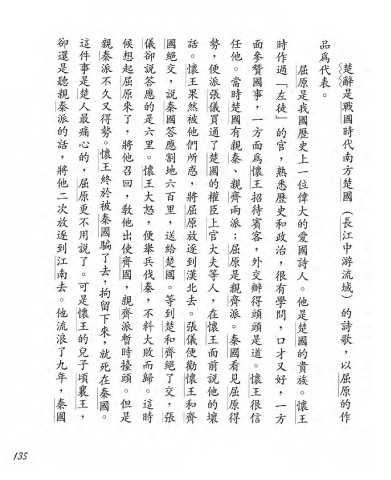 楚辭是戰國時代南方楚國（長江中游流域）的詩歌，以屈原的作
品爲代表。
屈原是我國歷史上一位偉大的愛國詩人。他是楚國的貴族。懷王
時作過「左徒」的官，熟悉歷史和政治，很有學問，口才又好，一方
面參贊國事，一方面爲懷王招待賓客，外交辦得頭頭是道。懷王很信
任他。當時楚國有親秦、親齊兩派：屈原是親齊派。秦國看見屈原得
勢，便派張儀買通了楚國的權臣上官大夫等人，在懷王面前說他的壞
話。懷王果然被他們所惑，將屈原放逐到漢北去。張儀便勸懷王和齊
國絕交，說秦國答應割地六百里，送給楚國。等到楚和齊絕了交，張
儀卻說答應的是六里。懷王大怒，便舉兵伐秦，不料大敗而歸。這時
候想起屈原來了，將他召回，教他出使齊國，親齊派暫時擡頭。但是
親秦派不久又得勢。懷王終於被秦國騙了去，拘留下來，就死在秦國。
這件事是楚人最痛心的，屈原更不用說了。可是懷王的兒子頃襄王，
卻還是聽親秦派的話，將他二次放逐到江南去。他流浪了九年，秦國
135